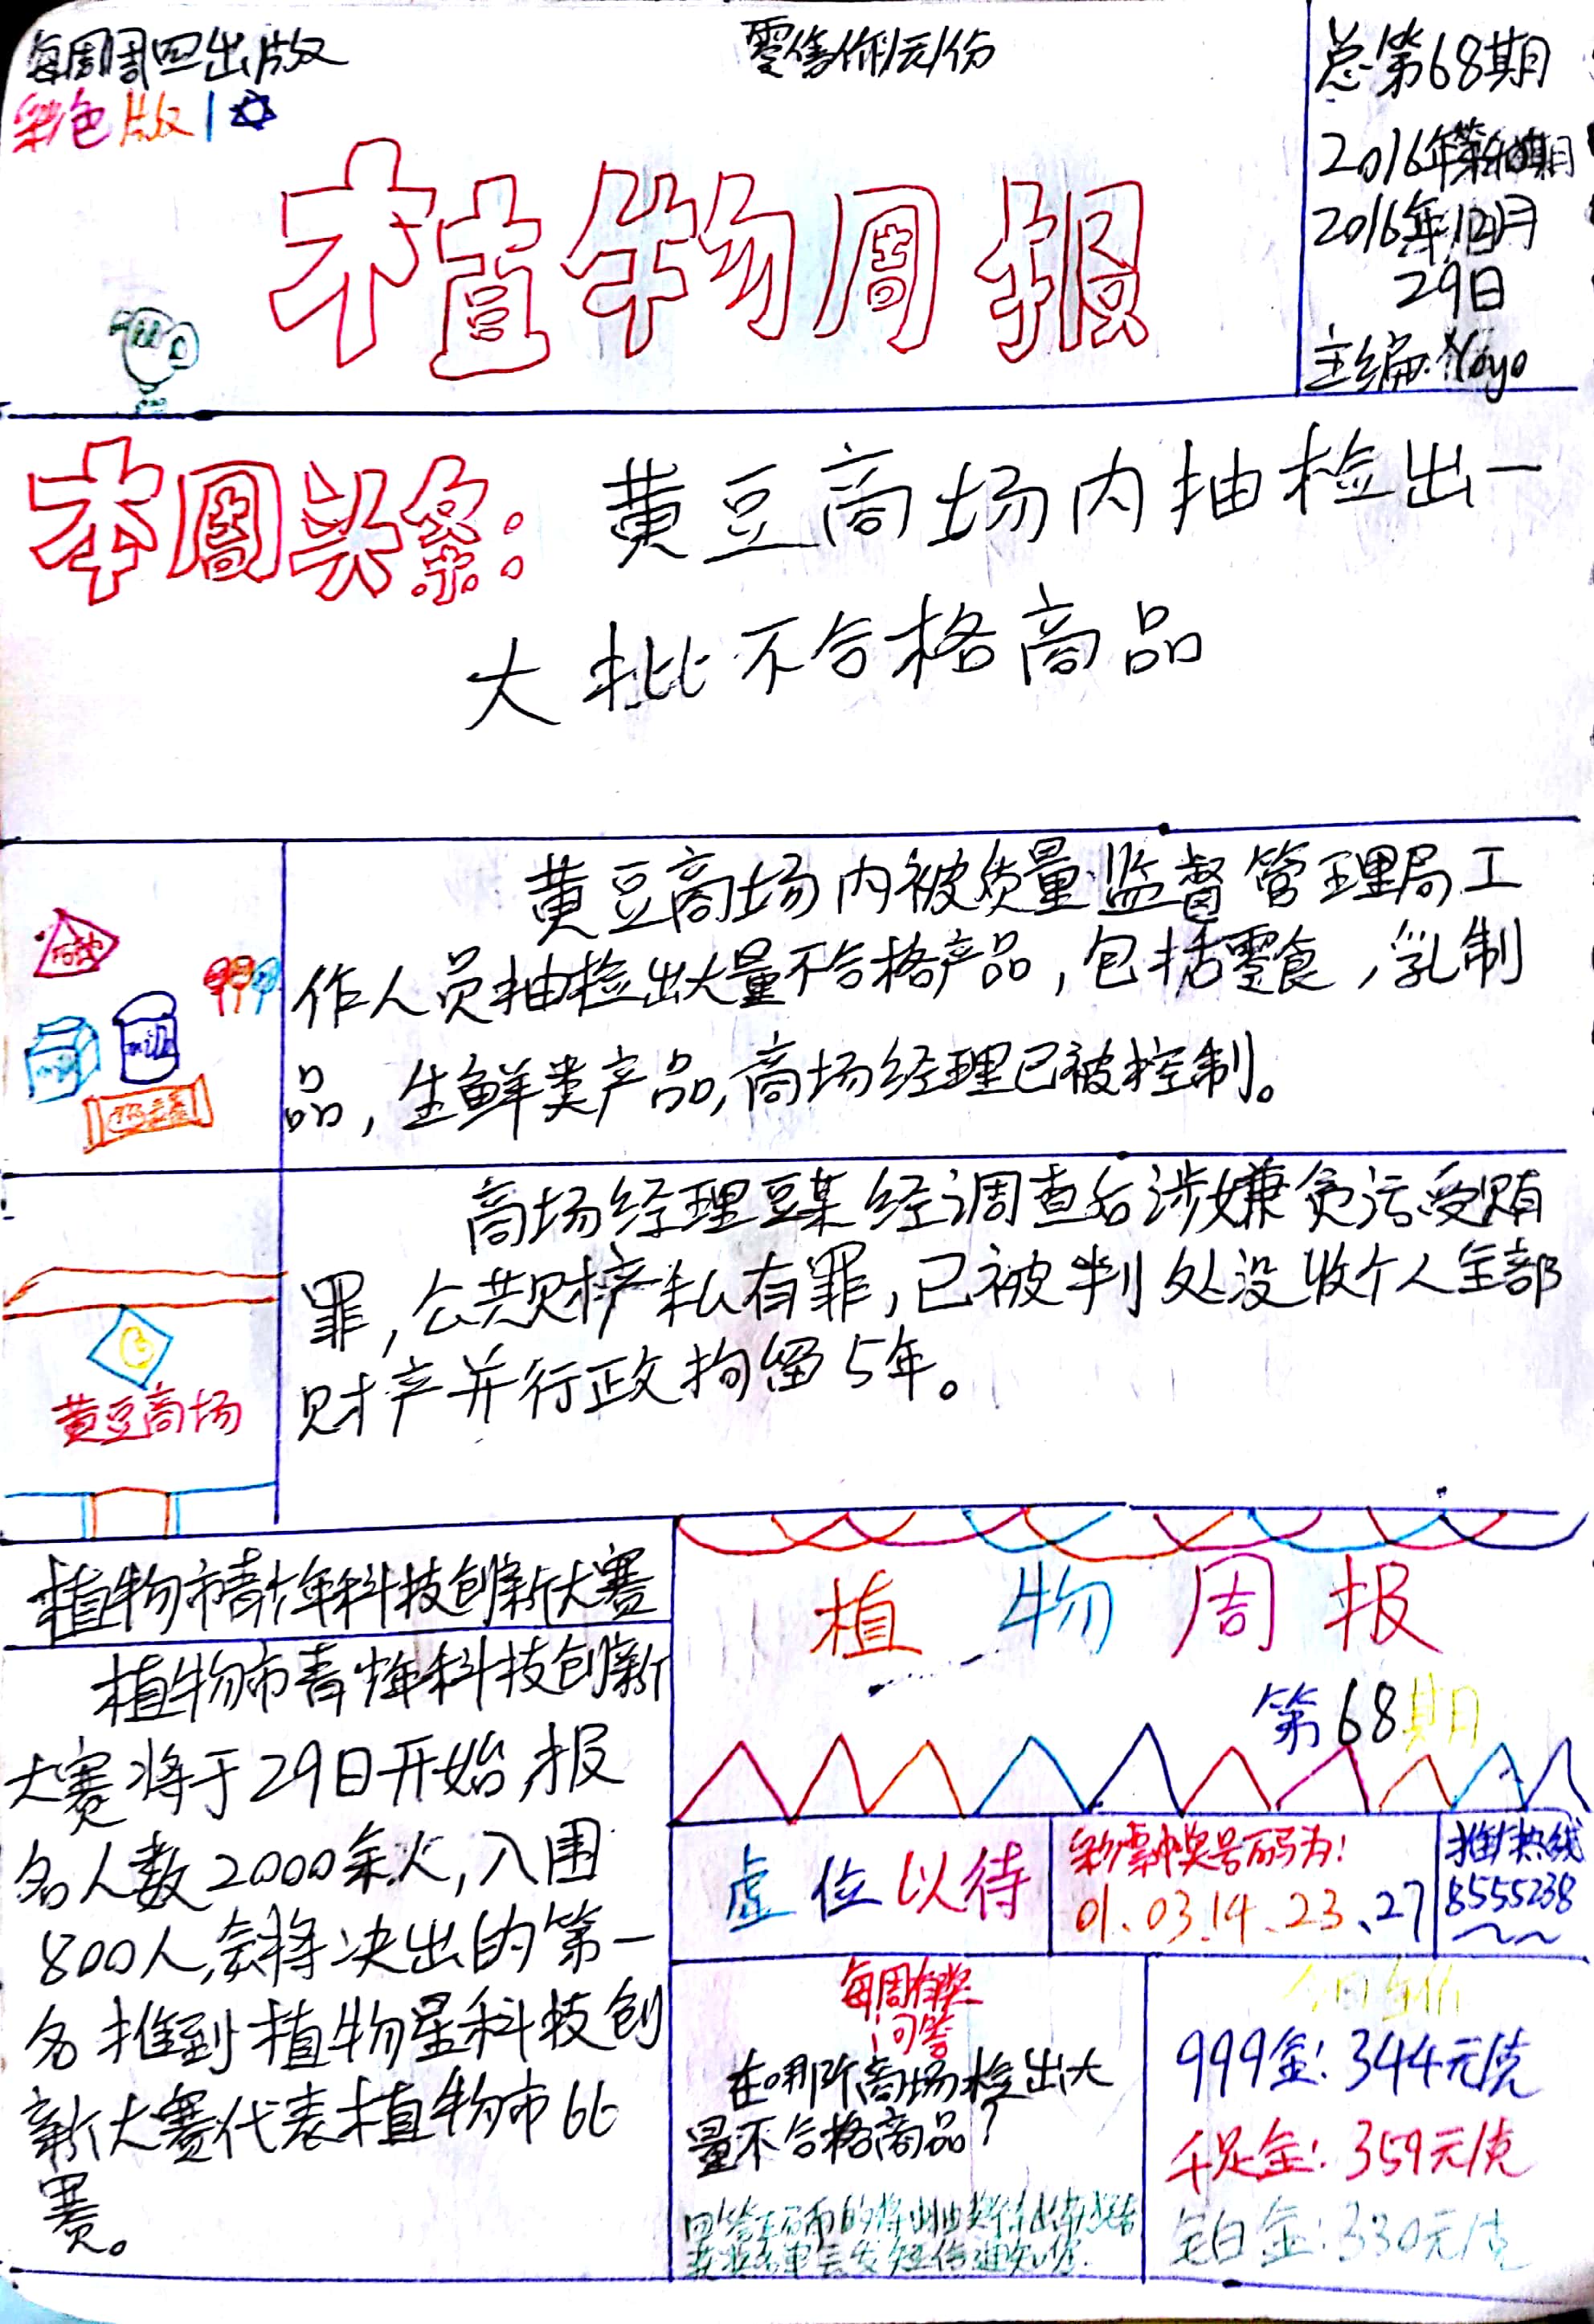 每周周四出版
零售价1元/份
彩色版1
总第68期
2016年第
2016年12月
29日
主编:Yoyo
植物周报
本周头条:黄豆商场内抽检出一
大批不合格商品
黄豆商场内被质量监督管理局工
作人员抽检出大量不合格产品,包括零食,乳制
品,生鲜类产品,商场经理已被控制。
milk
商场经理豆某经调查后涉嫌贪污受贿
罪,公共财产私有罪,已被判处没收个人全部
财产并行政拘留5年。
黄豆商场
植物市青少年科技创新大赛
植物市青少年科技创新
大赛将于29日开始,报
名人数2000余人,入围
800人,会将决出的第一
名推到植物星科技创
新大赛代表植物市比
赛。
植物周报
第68期
虚位以待
彩票中奖号码为:
01、03、14、23、27
推广热线
8555238
每周有奖
问答
在哪所商场检出大
量不合格商品?
今日金价
999金:344元/克
千足金:359元/克
铂白金:330元/克